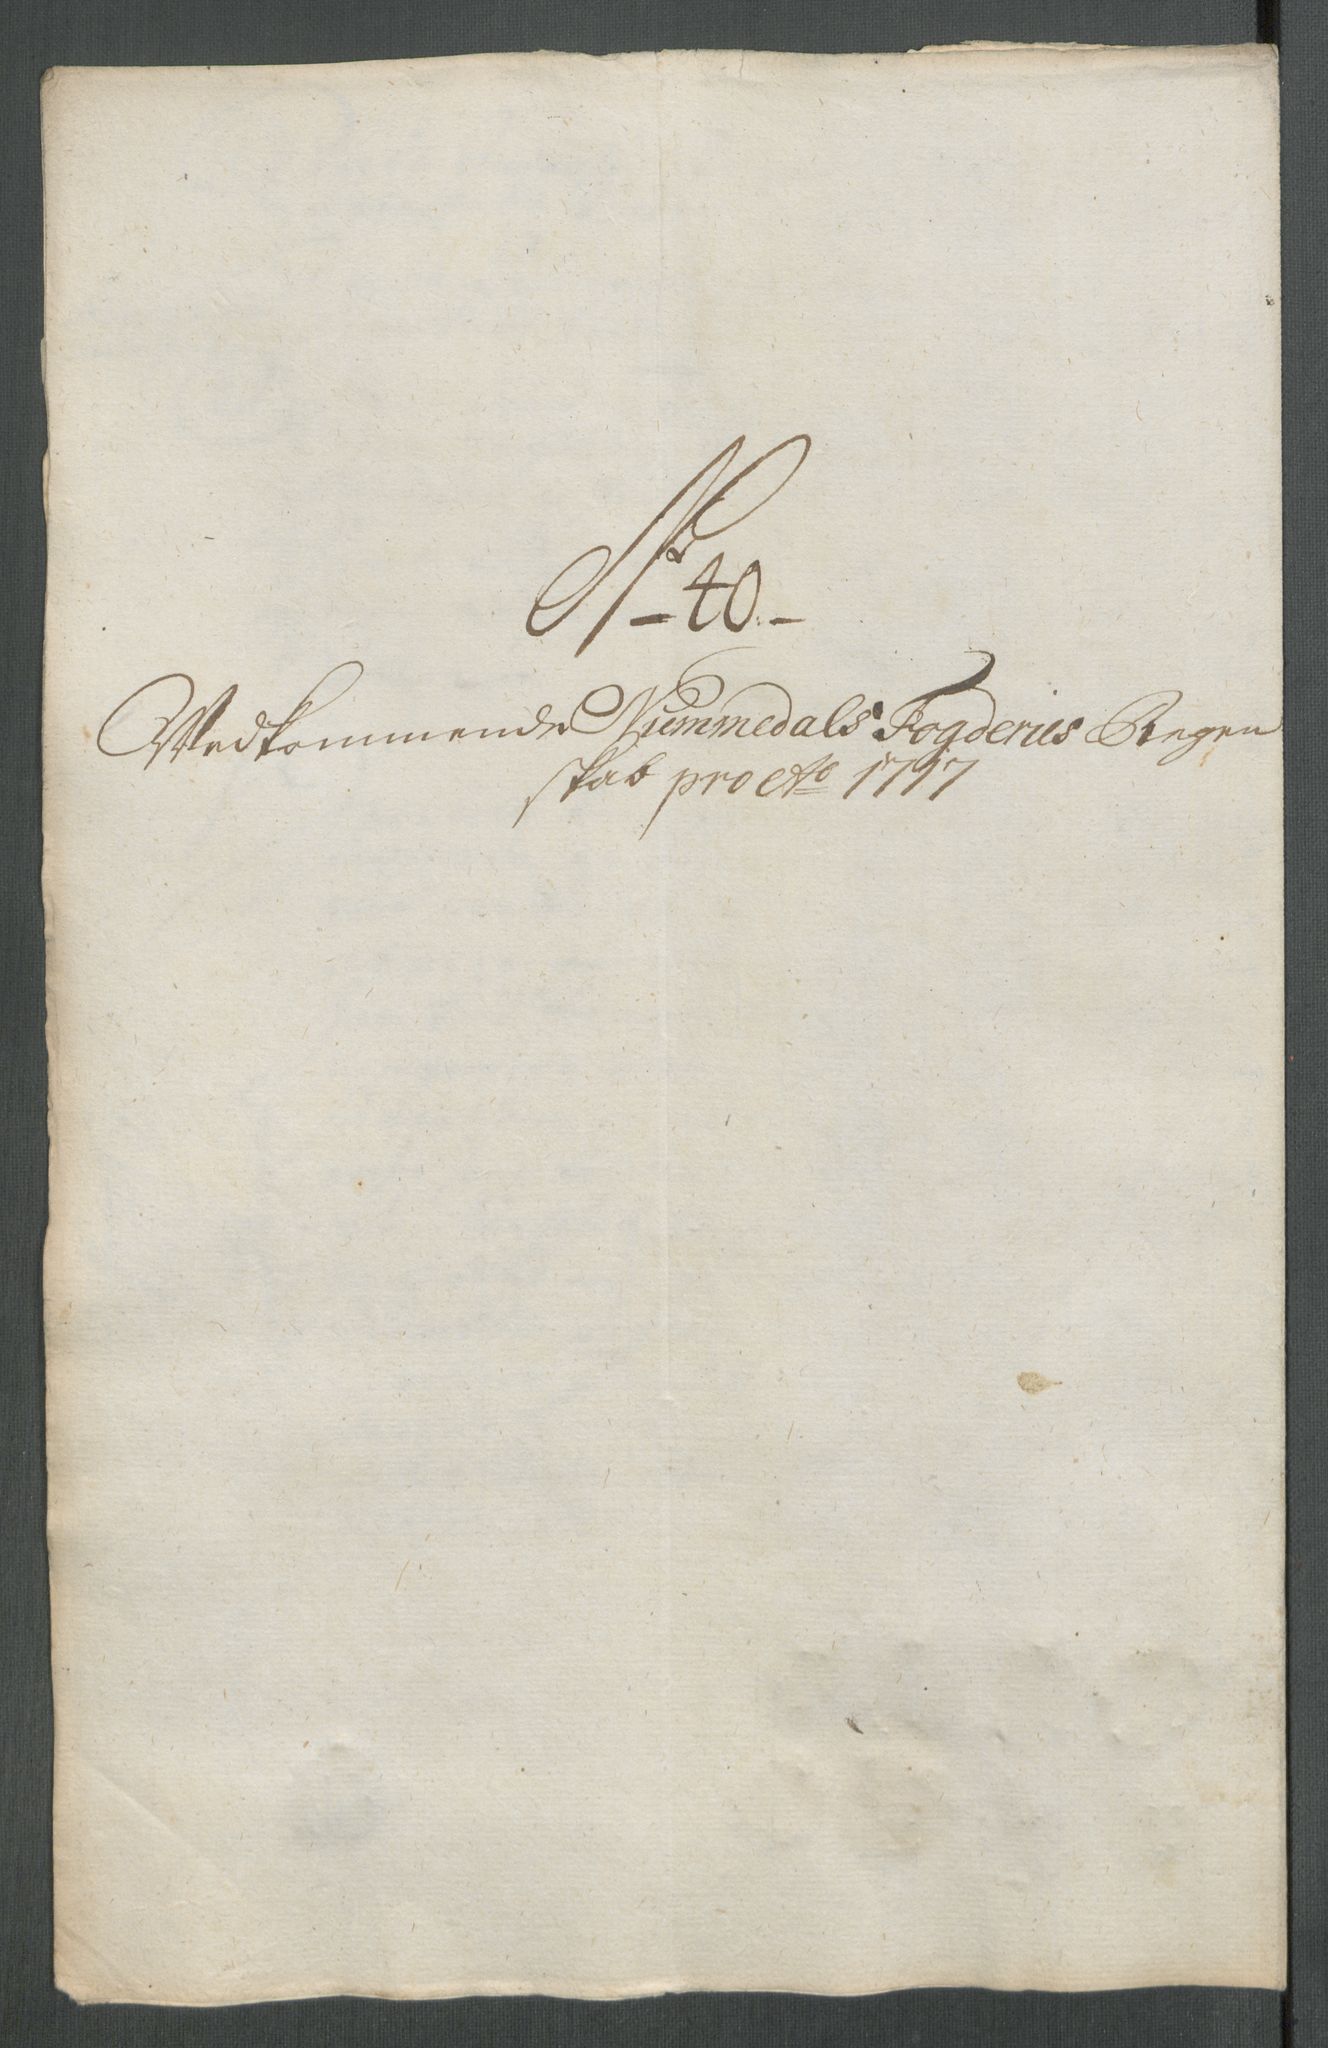 Nr. 40.
Vedkommende Nummedals Fogderies Regen
skab pro Ao 1717